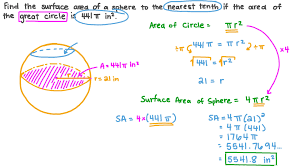 Find the surface area of a sphere to the nearest tenth if the area of
the great circle is 441π in².
Area of Circle = πr²
÷π 441π = πr² ÷π
√441 = √r²
21 = r
×4
A=441π in²
r=21 in
Surface Area of Sphere = 4πr²
SA = 4×(441π)
SA = 4π(21)²
= 4π(441)
= 1764π
= 5541.7694...
= 5541.8 in²